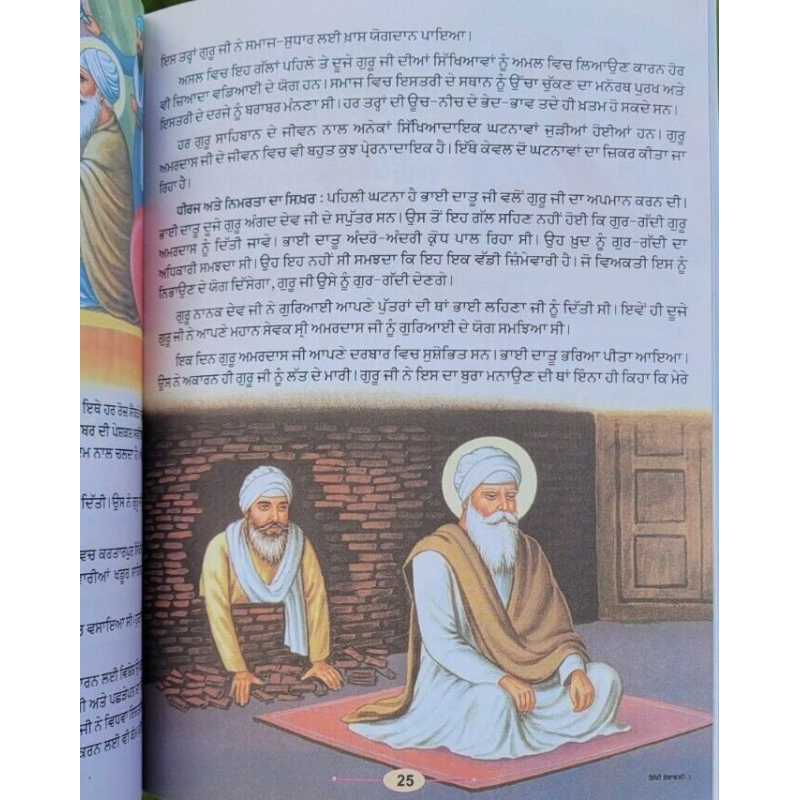 ਇਸ ਤਰ੍ਹਾਂ ਗੁਰੂ ਜੀ ਨੇ ਸਮਾਜ-ਸੁਧਾਰ ਲਈ ਖ਼ਾਸ ਯੋਗਦਾਨ ਪਾਇਆ।
ਅਸਲ ਵਿਚ ਇਹ ਗੱਲਾਂ ਪਹਿਲੇ ਤੇ ਦੂਜੇ ਗੁਰੂ ਜੀ ਦੀਆਂ ਸਿੱਖਿਆਵਾਂ ਨੂੰ ਅਮਲ ਵਿਚ ਲਿਆਉਣ ਕਾਰਨ ਹੋਰ
ਵੀ ਜ਼ਿਆਦਾ ਵਡਿਆਈ ਦੇ ਯੋਗ ਹਨ। ਸਮਾਜ ਵਿਚ ਇਸਤਰੀ ਦੇ ਸਥਾਨ ਨੂੰ ਉੱਚਾ ਚੁੱਕਣ ਦਾ ਮਨੋਰਥ ਪੁਰਖ ਅਤੇ
ਇਸਤਰੀ ਦੇ ਦਰਜੇ ਨੂੰ ਬਰਾਬਰ ਮੰਨਣਾ ਸੀ। ਹਰ ਤਰ੍ਹਾਂ ਦੀ ਊਚ-ਨੀਚ ਦੇ ਭੇਦ-ਭਾਵ ਤਦੇ ਹੀ ਖ਼ਤਮ ਹੋ ਸਕਦੇ ਸਨ।
ਹਰ ਗੁਰੂ ਸਾਹਿਬਾਨ ਦੇ ਜੀਵਨ ਨਾਲ ਅਨੇਕਾਂ ਸਿੱਖਿਆਦਾਇਕ ਘਟਨਾਵਾਂ ਜੁੜੀਆਂ ਹੋਈਆਂ ਹਨ। ਗੁਰੂ
ਅਮਰਦਾਸ ਜੀ ਦੇ ਜੀਵਨ ਵਿਚ ਵੀ ਬਹੁਤ ਕੁਝ ਪ੍ਰੇਰਨਾਦਾਇਕ ਹੈ। ਇੱਥੇ ਕੇਵਲ ਦੋ ਘਟਨਾਵਾਂ ਦਾ ਜ਼ਿਕਰ ਕੀਤਾ ਜਾ
ਰਿਹਾ ਹੈ।
ਧੀਰਜ ਅਤੇ ਨਿਮਰਤਾ ਦਾ ਸਿਖ਼ਰ : ਪਹਿਲੀ ਘਟਨਾ ਹੈ ਭਾਈ ਦਾਤੂ ਜੀ ਵਲੋਂ ਗੁਰੂ ਜੀ ਦਾ ਅਪਮਾਨ ਕਰਨ ਦੀ।
ਭਾਈ ਦਾਤੂ ਦੂਜੇ ਗੁਰੂ ਅੰਗਦ ਦੇਵ ਜੀ ਦੇ ਸਪੁੱਤਰ ਸਨ। ਉਸ ਤੋਂ ਇਹ ਗੱਲ ਸਹਿਣ ਨਹੀਂ ਹੋਈ ਕਿ ਗੁਰ-ਗੱਦੀ ਗੁਰੂ
ਅਮਰਦਾਸ ਨੂੰ ਦਿੱਤੀ ਜਾਵੇ। ਭਾਈ ਦਾਤੂ ਅੰਦਰੋ-ਅੰਦਰੀ ਕ੍ਰੋਧ ਪਾਲ ਰਿਹਾ ਸੀ। ਉਹ ਖ਼ੁਦ ਨੂੰ ਗੁਰ-ਗੱਦੀ ਦਾ
ਅਧਿਕਾਰੀ ਸਮਝਦਾ ਸੀ। ਉਹ ਇਹ ਨਹੀਂ ਸੀ ਸਮਝਦਾ ਕਿ ਇਹ ਇਕ ਵੱਡੀ ਜ਼ਿੰਮੇਵਾਰੀ ਹੈ। ਜੋ ਵਿਅਕਤੀ ਇਸ ਨੂੰ
ਨਿਭਾਉਣ ਦੇ ਯੋਗ ਦਿੱਸੇਗਾ, ਗੁਰੂ ਜੀ ਉਸੇ ਨੂੰ ਗੁਰ-ਗੱਦੀ ਦੇਣਗੇ।
ਗੁਰੂ ਨਾਨਕ ਦੇਵ ਜੀ ਨੇ ਗੁਰਿਆਈ ਆਪਣੇ ਪੁੱਤਰਾਂ ਦੀ ਥਾਂ ਭਾਈ ਲਹਿਣਾ ਜੀ ਨੂੰ ਦਿੱਤੀ ਸੀ। ਇਵੇਂ ਹੀ ਦੂਜੇ
ਗੁਰੂ ਜੀ ਨੇ ਆਪਣੇ ਮਹਾਨ ਸੇਵਕ ਸ੍ਰੀ ਅਮਰਦਾਸ ਜੀ ਨੂੰ ਗੁਰਿਆਈ ਦੇ ਯੋਗ ਸਮਝਿਆ ਸੀ।
ਇਕ ਦਿਨ ਗੁਰੂ ਅਮਰਦਾਸ ਜੀ ਆਪਣੇ ਦਰਬਾਰ ਵਿਚ ਸੁਸ਼ੋਭਿਤ ਸਨ। ਭਾਈ ਦਾਤੂ ਭਰਿਆ ਪੀਤਾ ਆਇਆ।
ਉਸ ਨੇ ਅਕਾਰਨ ਹੀ ਗੁਰੂ ਜੀ ਨੂੰ ਲੱਤ ਦੇ ਮਾਰੀ। ਗੁਰੂ ਜੀ ਨੇ ਇਸ ਦਾ ਬੁਰਾ ਮਨਾਉਣ ਦੀ ਥਾਂ ਇੰਨਾ ਹੀ ਕਿਹਾ ਕਿ ਮੇਰੇ
ਇਥੇ ਹਰ ਰੋਜ਼
ਬਰ ਦੀ ਪੇਸ਼ਕਸ਼
ਮ ਨਾਲ ਚਲਦਾ
ਦਿੱਤੀ। ਉਸ ਨੇ
ਵਚ ਕਰਤਾਰਪੁਰ
ਾਰੀਆਂ ਖਡੂਰ
ਵਸਾਇਆ ਸੀ।
ਾਰਨ ਲਈ
ੀ ਅਤੇ
ਜੀ ਨੇ ਵਿਧਵਾ
ਕਰਨ ਲਈ ਵੀ
25